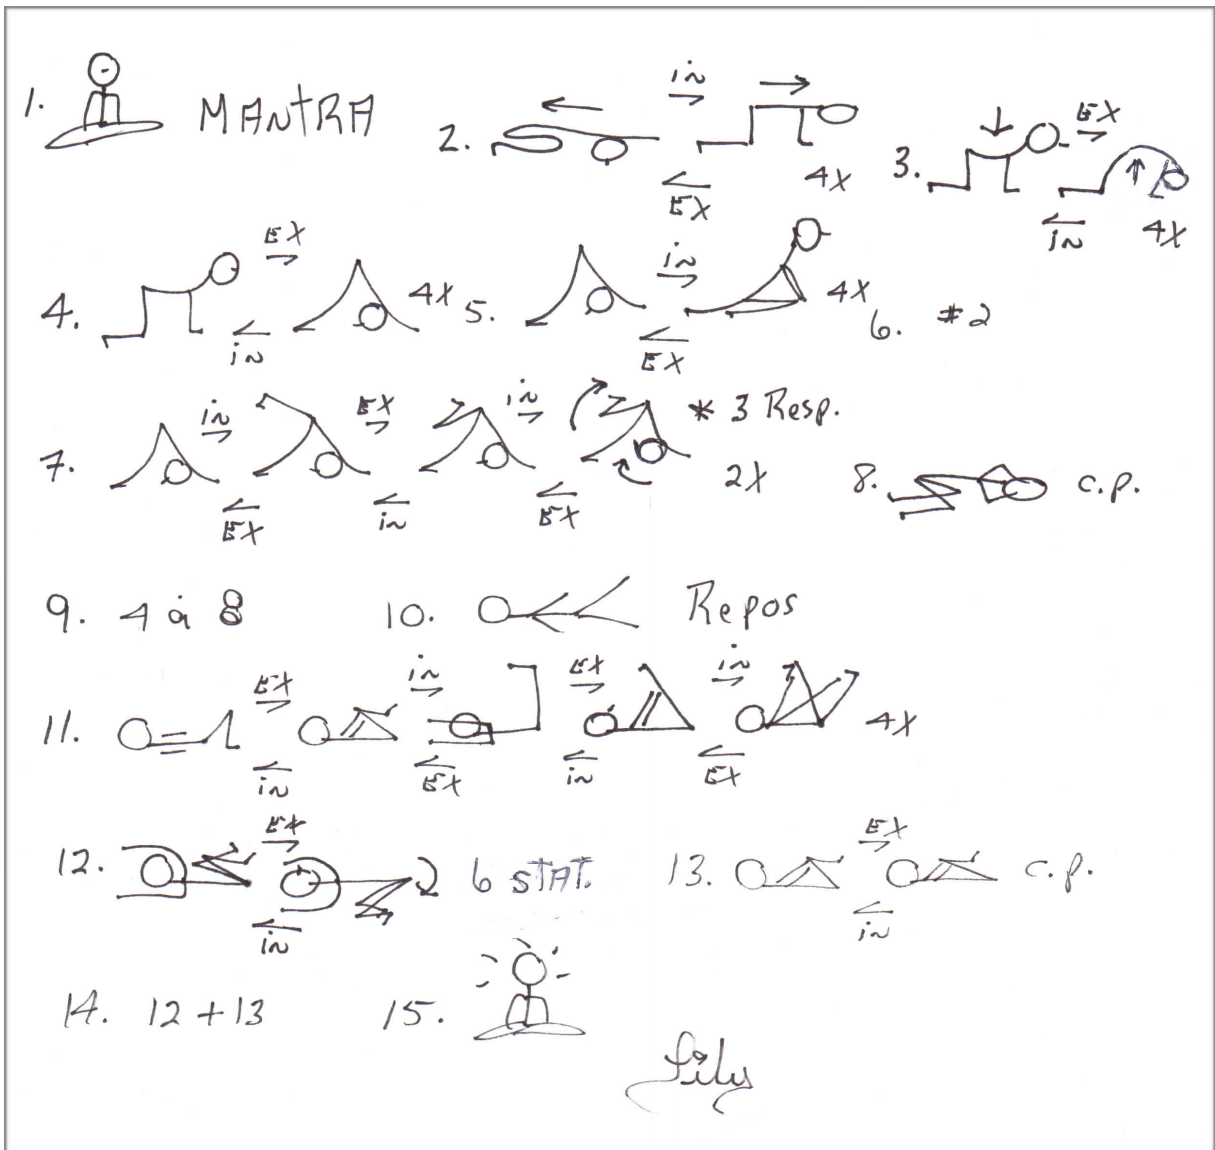 1. MANTRA
2. in EX 4X
3. EX in 4X
4. EX in 4X
5. in EX 4X
6. #2
7. in EX EX in in EX * 3 Resp. 2X
8. c.p.
9. 4 à 8
10. Repos
11. EX in in EX EX in in EX 4X
12. EX in 6 STAT.
13. EX in c.p.
14. 12 + 13
15.
Lily